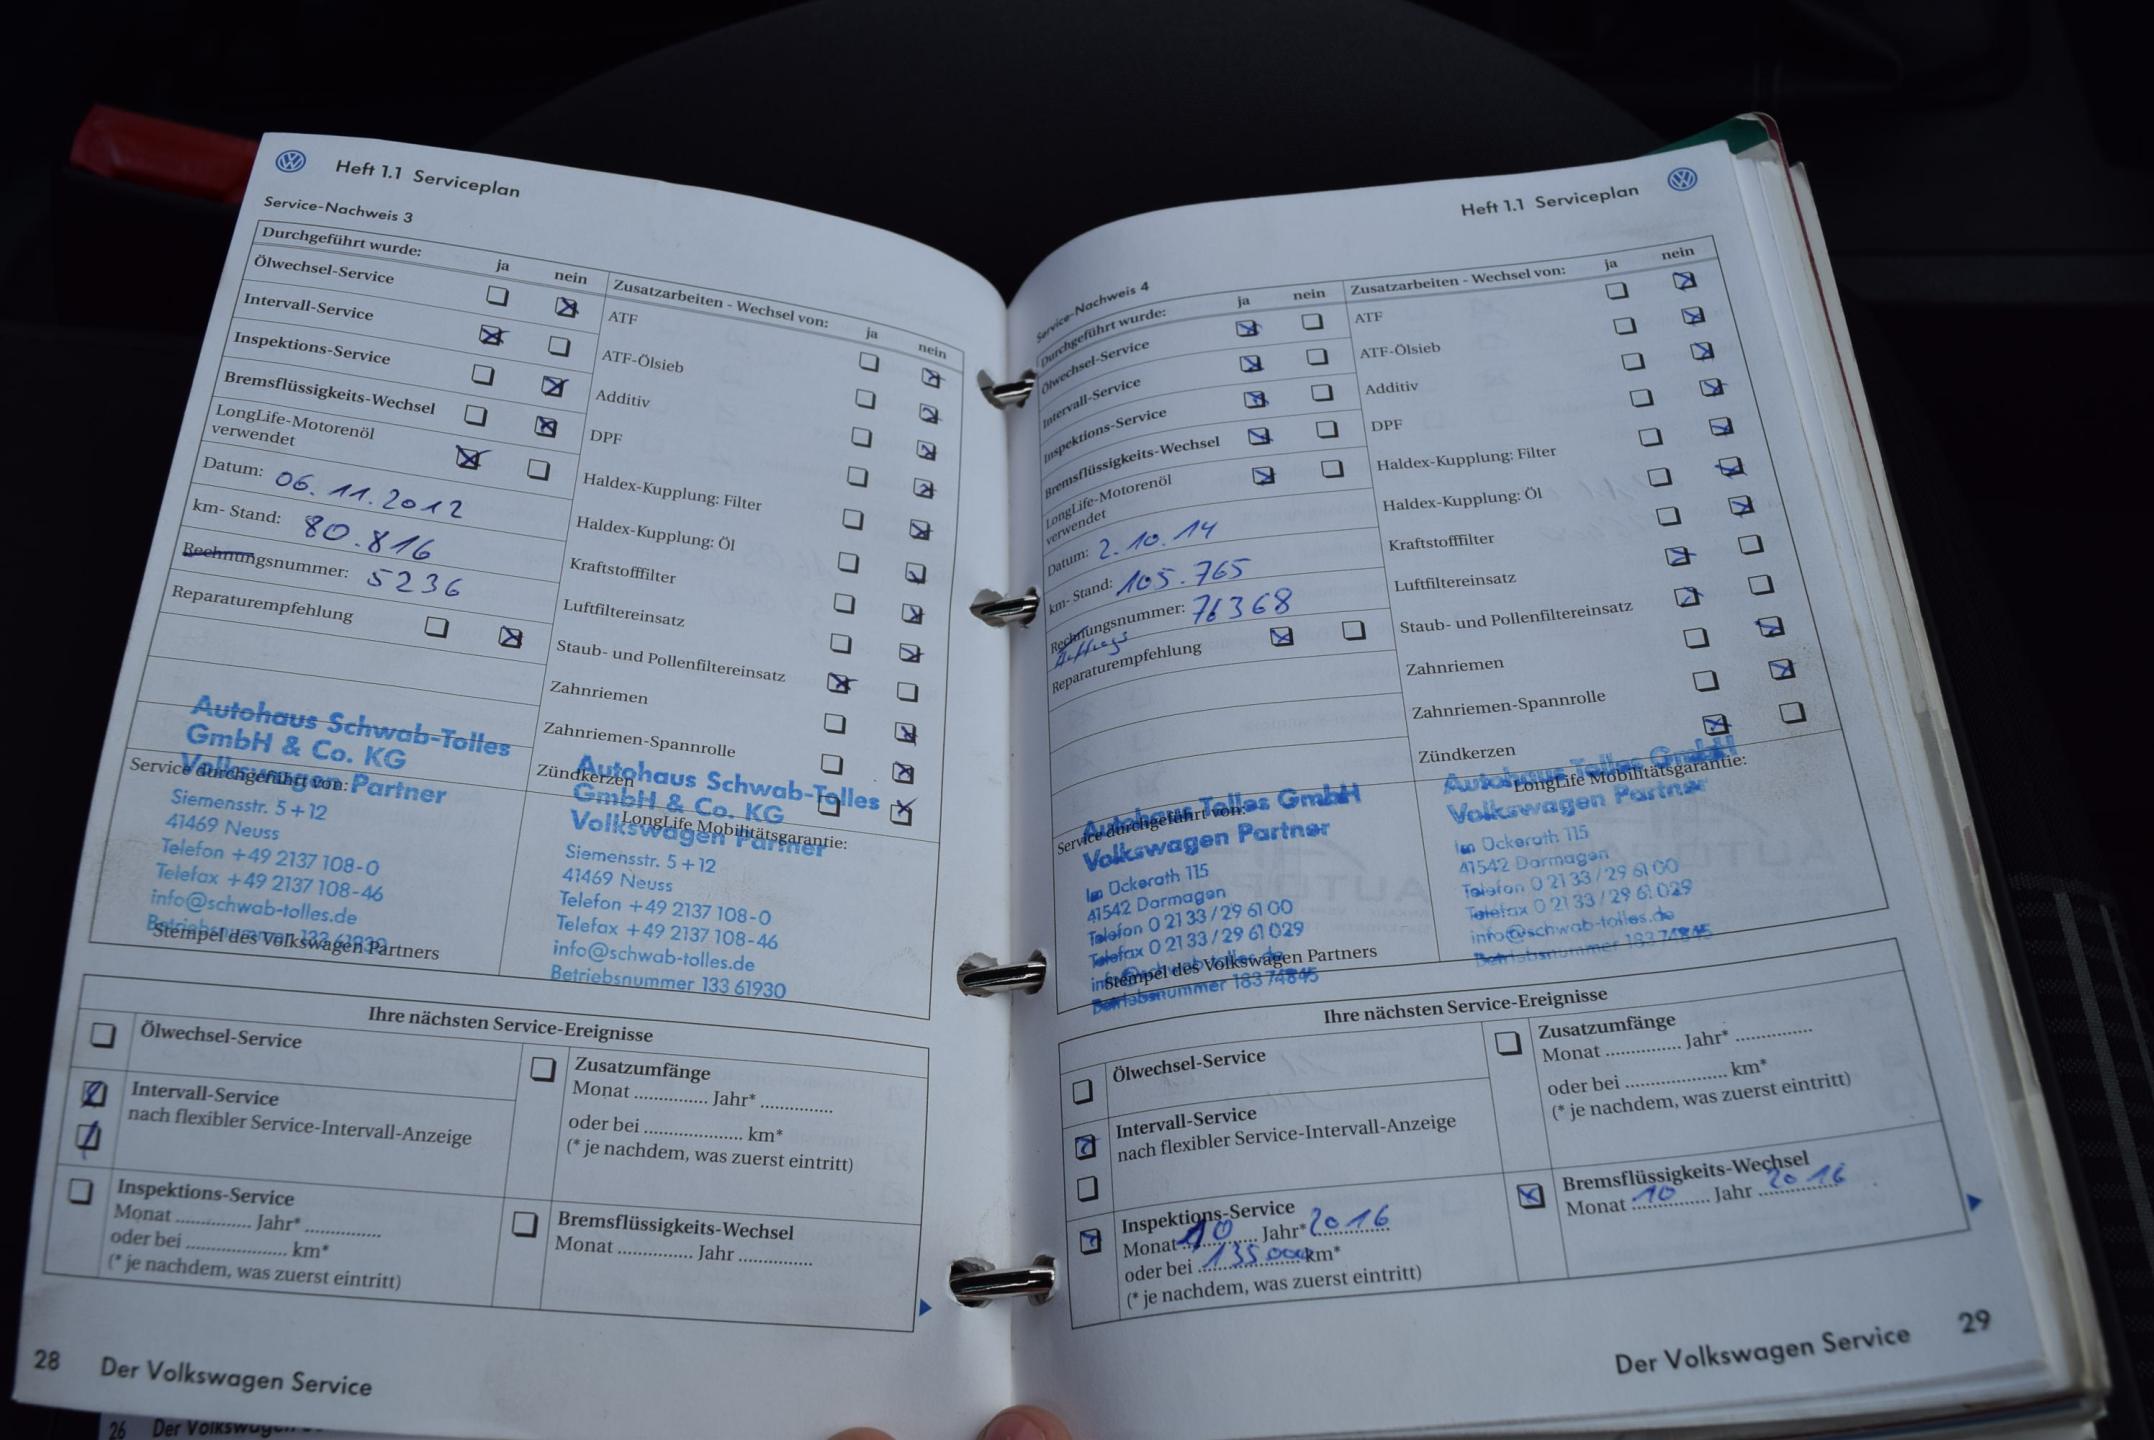 Heft 1.1 Serviceplan
Service-Nachweis 3
Durchgeführt wurde: ja nein
Ölwechsel-Service
Intervall-Service
Inspektions-Service
Bremsflüssigkeits-Wechsel
LongLife-Motorenöl
verwendet
Datum: 06.11.2012
km- Stand: 80.816
Rechnungsnummer: 5236
Reparaturempfehlung
Zusatzarbeiten - Wechsel von: ja nein
ATF
ATF-Ölsieb
Additiv
DPF
Haldex-Kupplung: Filter
Haldex-Kupplung: Öl
Kraftstofffilter
Luftfiltereinsatz
Staub- und Pollenfiltereinsatz
Zahnriemen
Zahnriemen-Spannrolle
Zündkerzen
Autohaus Schwab-Tolles
GmbH & Co. KG
Volkswagen Partner
Service durchgeführt von:
Siemensstr. 5+12
41469 Neuss
Telefon +49 2137 108-0
Telefax +49 2137 108-46
info@schwab-tolles.de
Betriebsnummer 133 61930
Stempel des Volkswagen Partners
Autohaus Schwab-Tolles
GmbH & Co. KG
LongLife Mobilitätsgarantie:
Volkswagen Partner
Siemensstr. 5+12
41469 Neuss
Telefon +49 2137 108-0
Telefax +49 2137 108-46
info@schwab-tolles.de
Betriebsnummer 133 61930
Ihre nächsten Service-Ereignisse
Ölwechsel-Service
Intervall-Service
nach flexibler Service-Intervall-Anzeige
Inspektions-Service
Monat .............. Jahr* ..............
oder bei .................... km*
(* je nachdem, was zuerst eintritt)
Zusatzumfänge
Monat .............. Jahr* ..............
oder bei .................... km*
(* je nachdem, was zuerst eintritt)
Bremsflüssigkeits-Wechsel
Monat .............. Jahr ..............
28 Der Volkswagen Service
26 Der Volkswagen
Heft 1.1 Serviceplan
Service-Nachweis 4
Durchgeführt wurde: ja nein
Ölwechsel-Service
Intervall-Service
Inspektions-Service
Bremsflüssigkeits-Wechsel
LongLife-Motorenöl
verwendet
Datum: 2.10.14
km- Stand: 105.765
Rechnungsnummer: 76368
Auftrags
Reparaturempfehlung
Zusatzarbeiten - Wechsel von: ja nein
ATF
ATF-Ölsieb
Additiv
DPF
Haldex-Kupplung: Filter
Haldex-Kupplung: Öl
Kraftstofffilter
Luftfiltereinsatz
Staub- und Pollenfiltereinsatz
Zahnriemen
Zahnriemen-Spannrolle
Zündkerzen
Autohaus Tolles GmbH
Service durchgeführt von:
Volkswagen Partner
Im Ockerath 115
41542 Dormagen
Telefon 0 21 33 / 29 61 00
Telefax 0 21 33 / 29 61 029
info@schwab-tolles.de
Stempel des Volkswagen Partners
Betriebsnummer 183 74845
Autohaus Tolles GmbH
LongLife Mobilitätsgarantie:
Volkswagen Partner
Im Ockerath 115
41542 Dormagen
Telefon 0 21 33 / 29 61 00
Telefax 0 21 33 / 29 61 029
info@schwab-tolles.de
Betriebsnummer 183 74845
Ihre nächsten Service-Ereignisse
Ölwechsel-Service
Intervall-Service
nach flexibler Service-Intervall-Anzeige
Inspektions-Service
Monat 10 Jahr* 2016
oder bei 135 000 km*
(* je nachdem, was zuerst eintritt)
Zusatzumfänge
Monat .............. Jahr* ..............
oder bei .................... km*
(* je nachdem, was zuerst eintritt)
Bremsflüssigkeits-Wechsel
Monat 10 Jahr 2016
Der Volkswagen Service 29